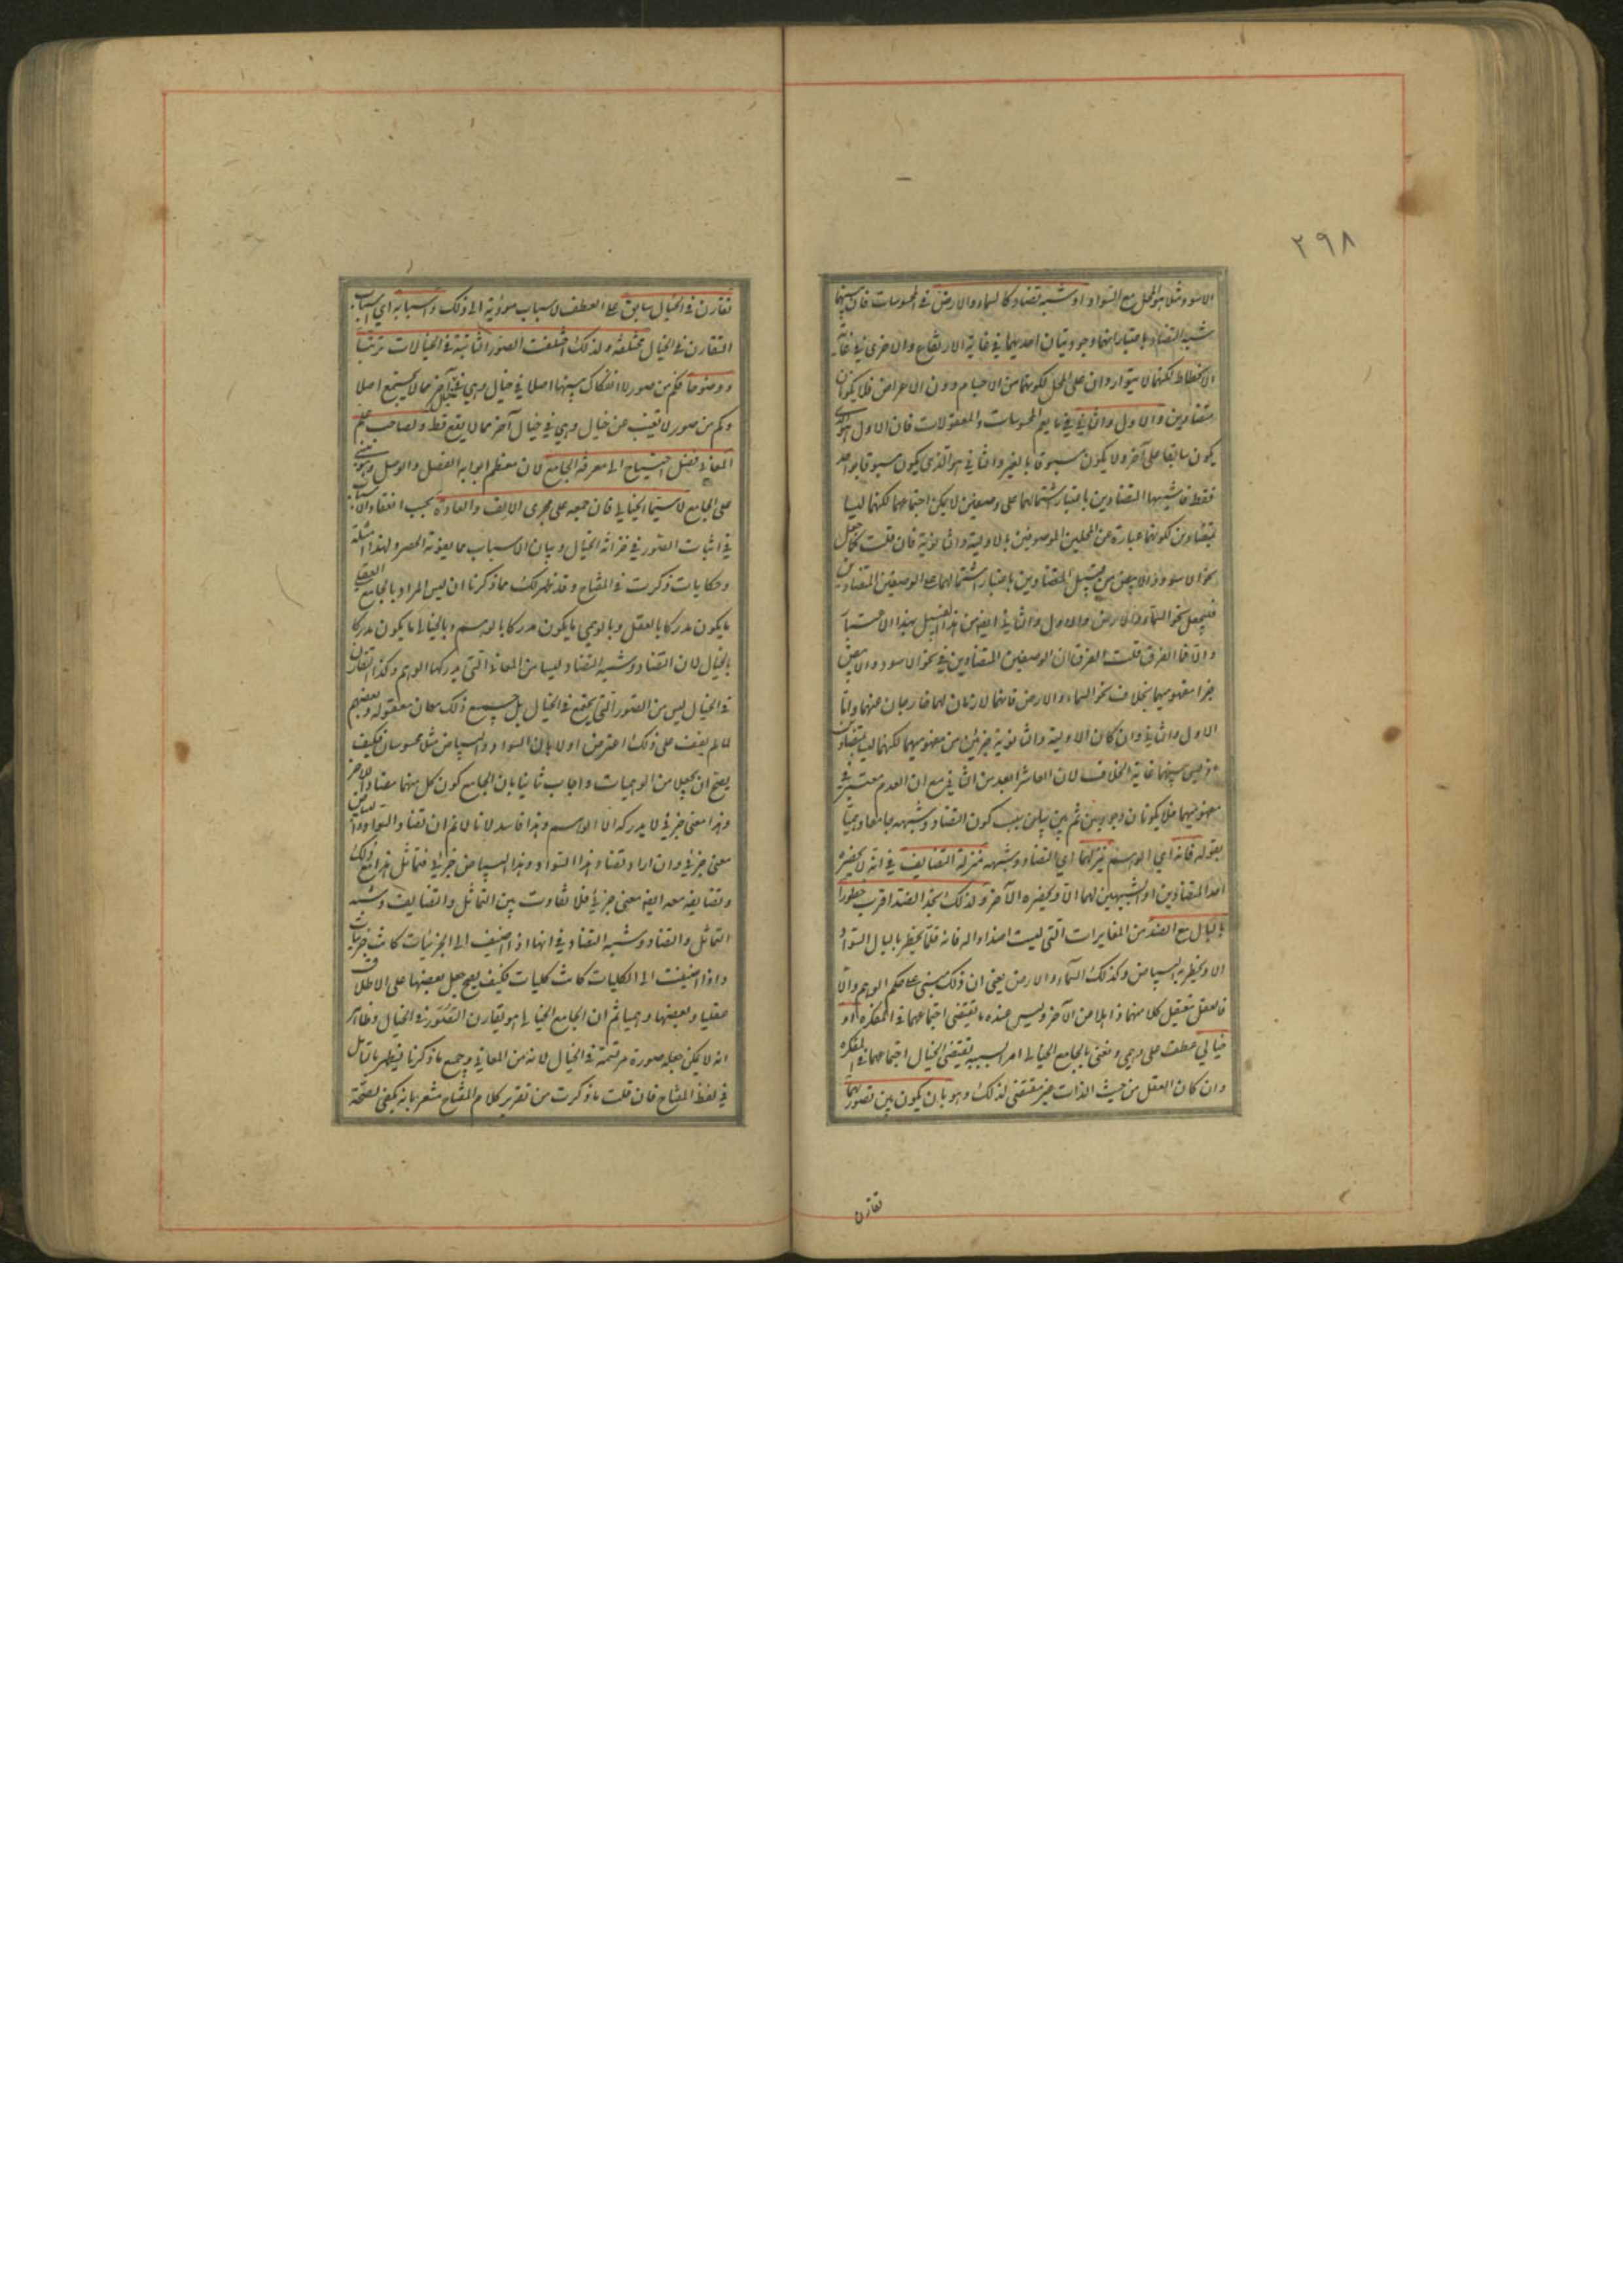 ٢٩٨
الاسود مثلا هو المحل مع السواد او شبه تضاد كالسماء والارض في المحسوسات فان بينهما
شبه التضاد باعتبار انهما وجوديتان احديهما في غاية الارتفاع والاخرى في غاية
الانحطاط لكنهما لا يتواردان على المحل لكونهما من الاجسام دون الاعراض فلا يكونان
متضادين والاول والثاني فيما يعم المحسوسات والمعقولات فان الاول هو الذي
يكون سابقا على آخر ولا يكون مسبوقا بالغير والثاني هو الذي يكون مسبوقا بواحد
فقط فاشبها المتضادين باعتبار اشتمالهما على وصفين لا يمكن اجتماعهما لكنهما ليسا
بمتضادين لكونهما عبارة عن المحلين الموصوفين بالاولية والثانوية فان قلت كما جعل
نحو الاسود والابيض من قبيل المتضادين باعتبار اشتمالهما على الوصفين المتضادين
فليجعل نحو السماء والارض والاول والثاني ايضا من هذا القبيل بهذا الاعتبار
والا فما الفرق قلت الفرق ان الوصفين المتضادين في نحو الاسود والابيض
جزءا مفهوميهما بخلاف نحو السماء والارض فانهما لازمان لهما خارجان عنهما واما
الاول والثاني وان كان الاولية والثانوية جزئين من مفهوميهما لكنهما ليسا بمتضادين
اذ ليس بينهما غاية الخلاف لان العاشر ابعد من الثاني مع ان العدم معتبر في
مفهوميهما فلا يكونان وجوديين ثم بين بيان سبب كون التضاد وشبهه جامعا وهميا
بقوله فانه اي الوهم ينزلهما اي التضاد وشبهه منزلة التضايف في انه لا يحضره
احد المتضادين او الشبيهين لهما الا ويحضره الآخر ولذلك تجد الضد اقرب خطورا
بالبال مع الضد من المغايرات التي ليست اضدادا له فانه قلما يخطر بالبال السواد
الا ويخطر به البياض وكذلك السماء والارض يعني ان ذلك مبني على حكم الوهم والا
فالعقل يتعقل كلا منهما ذاهلا عن الآخر وليس عنده ما يقتضي اجتماعهما في المفكرة او
خيالي عطف على وهمي ونعني بالجامع الخيالي امرا بسببه يقتضي الخيال اجتماعهما في المفكرة
وان كان العقل من حيث الذات غير مقتض لذلك وهو بان يكون بين تصوريهما
تقارن
تقارن في الخيال سابق على العطف لاسباب مؤدية الى ذلك واسبابه اي اسباب
التقارن في الخيال مختلفة ولذلك اختلفت الصور الثابتة في الخيالات ترتبا
ووضوحا فكم من صور لا انفكاك بينها اصلا في خيال وهي في خيال آخر مما لا يجتمع اصلا
وكم من صور لا تغيب عن خيال وهي في خيال آخر مما لا يقع قط ولصاحب علم
المعاني فضل احتياج الى معرفة الجامع لان معظم ابوابه الفصل والوصل وهو مبني
على الجامع لا سيما الخيالي فان جمعه على مجرى الالف والعادة بحسب انعقاد الاسباب
في اثبات الصور في خزانة الخيال وبيان الاسباب مما يفوته الحصر ولهذا امثلة
وحكايات ذكرت في المفتاح وقد ظهر لك مما ذكرنا ان ليس المراد بالجامع العقلي
ما يكون مدركا بالعقل وبالوهمي ما يكون مدركا بالوهم وبالخيالي ما يكون مدركا
بالخيال لان التضاد وشبه التضاد ليسا من المعاني التي يدركها الوهم وكذا التقارن
في الخيال ليس من الصور التي يجتمع في الخيال بل جميع ذلك معان معقولة وبعضهم
لما لم يقف على ذلك اعترض اولا بان السواد والبياض مثلا محسوسان فكيف
يصح ان يجعلا من الوهميات واجاب ثانيا بان الجامع كون كل منهما مضادا للآخر
وهذا معنى جزئي لا يدركه الا الوهم وهذا فاسد لانا لا نم ان تضاد السواد والبياض
معنى جزئي وان اراد تضاد هذا السواد وهذا البياض جزئي فتماثل هذا مع ذلك
وتضايفه معه ايضا معنى جزئي فلا تفاوت بين التماثل والتضايف وشبه
التماثل والتضاد وشبه التضاد في انها اذا اضيف الى الجزئيات كانت جزئيات
واذا اضيفت الى الكليات كانت كليات فكيف يصح جعل بعضها على الاطلاق
عقليا وبعضها وهميا ثم ان الجامع الخيالي هو تقارن الصور في الخيال وظاهر
انه لا يمكن جعله صورة مرتسمة في الخيال لانه من المعاني وجميع ما ذكرنا يظهر بالتأمل
في لفظ المفتاح فان قلت ما ذكرت من تقرير كلام المفتاح مشعر بانه يكفي لصحة